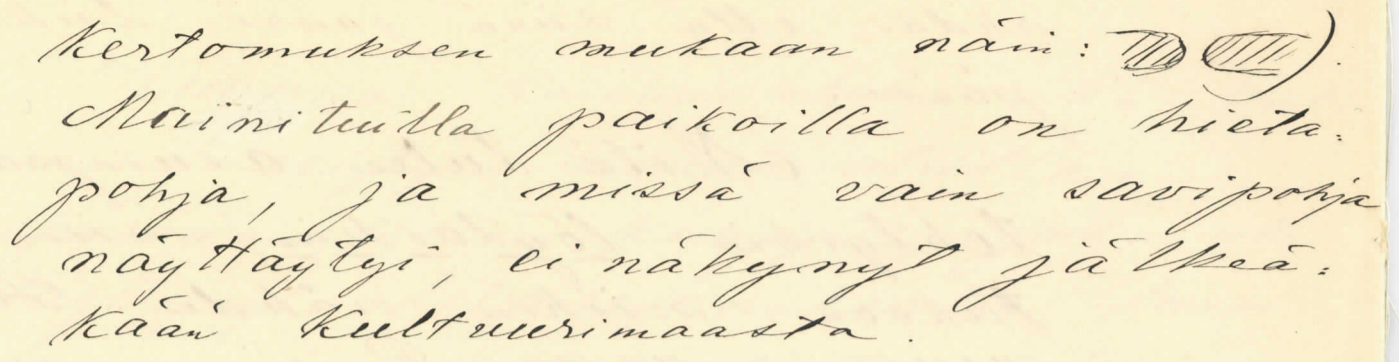 kertomuksen mukaan näin: ).
Mainituilla paikoilla on hieta-
pohja, ja missä vain savipohja
näyttäytyi, ei näkynyt jälkeä-
kään kultuurimaasta.